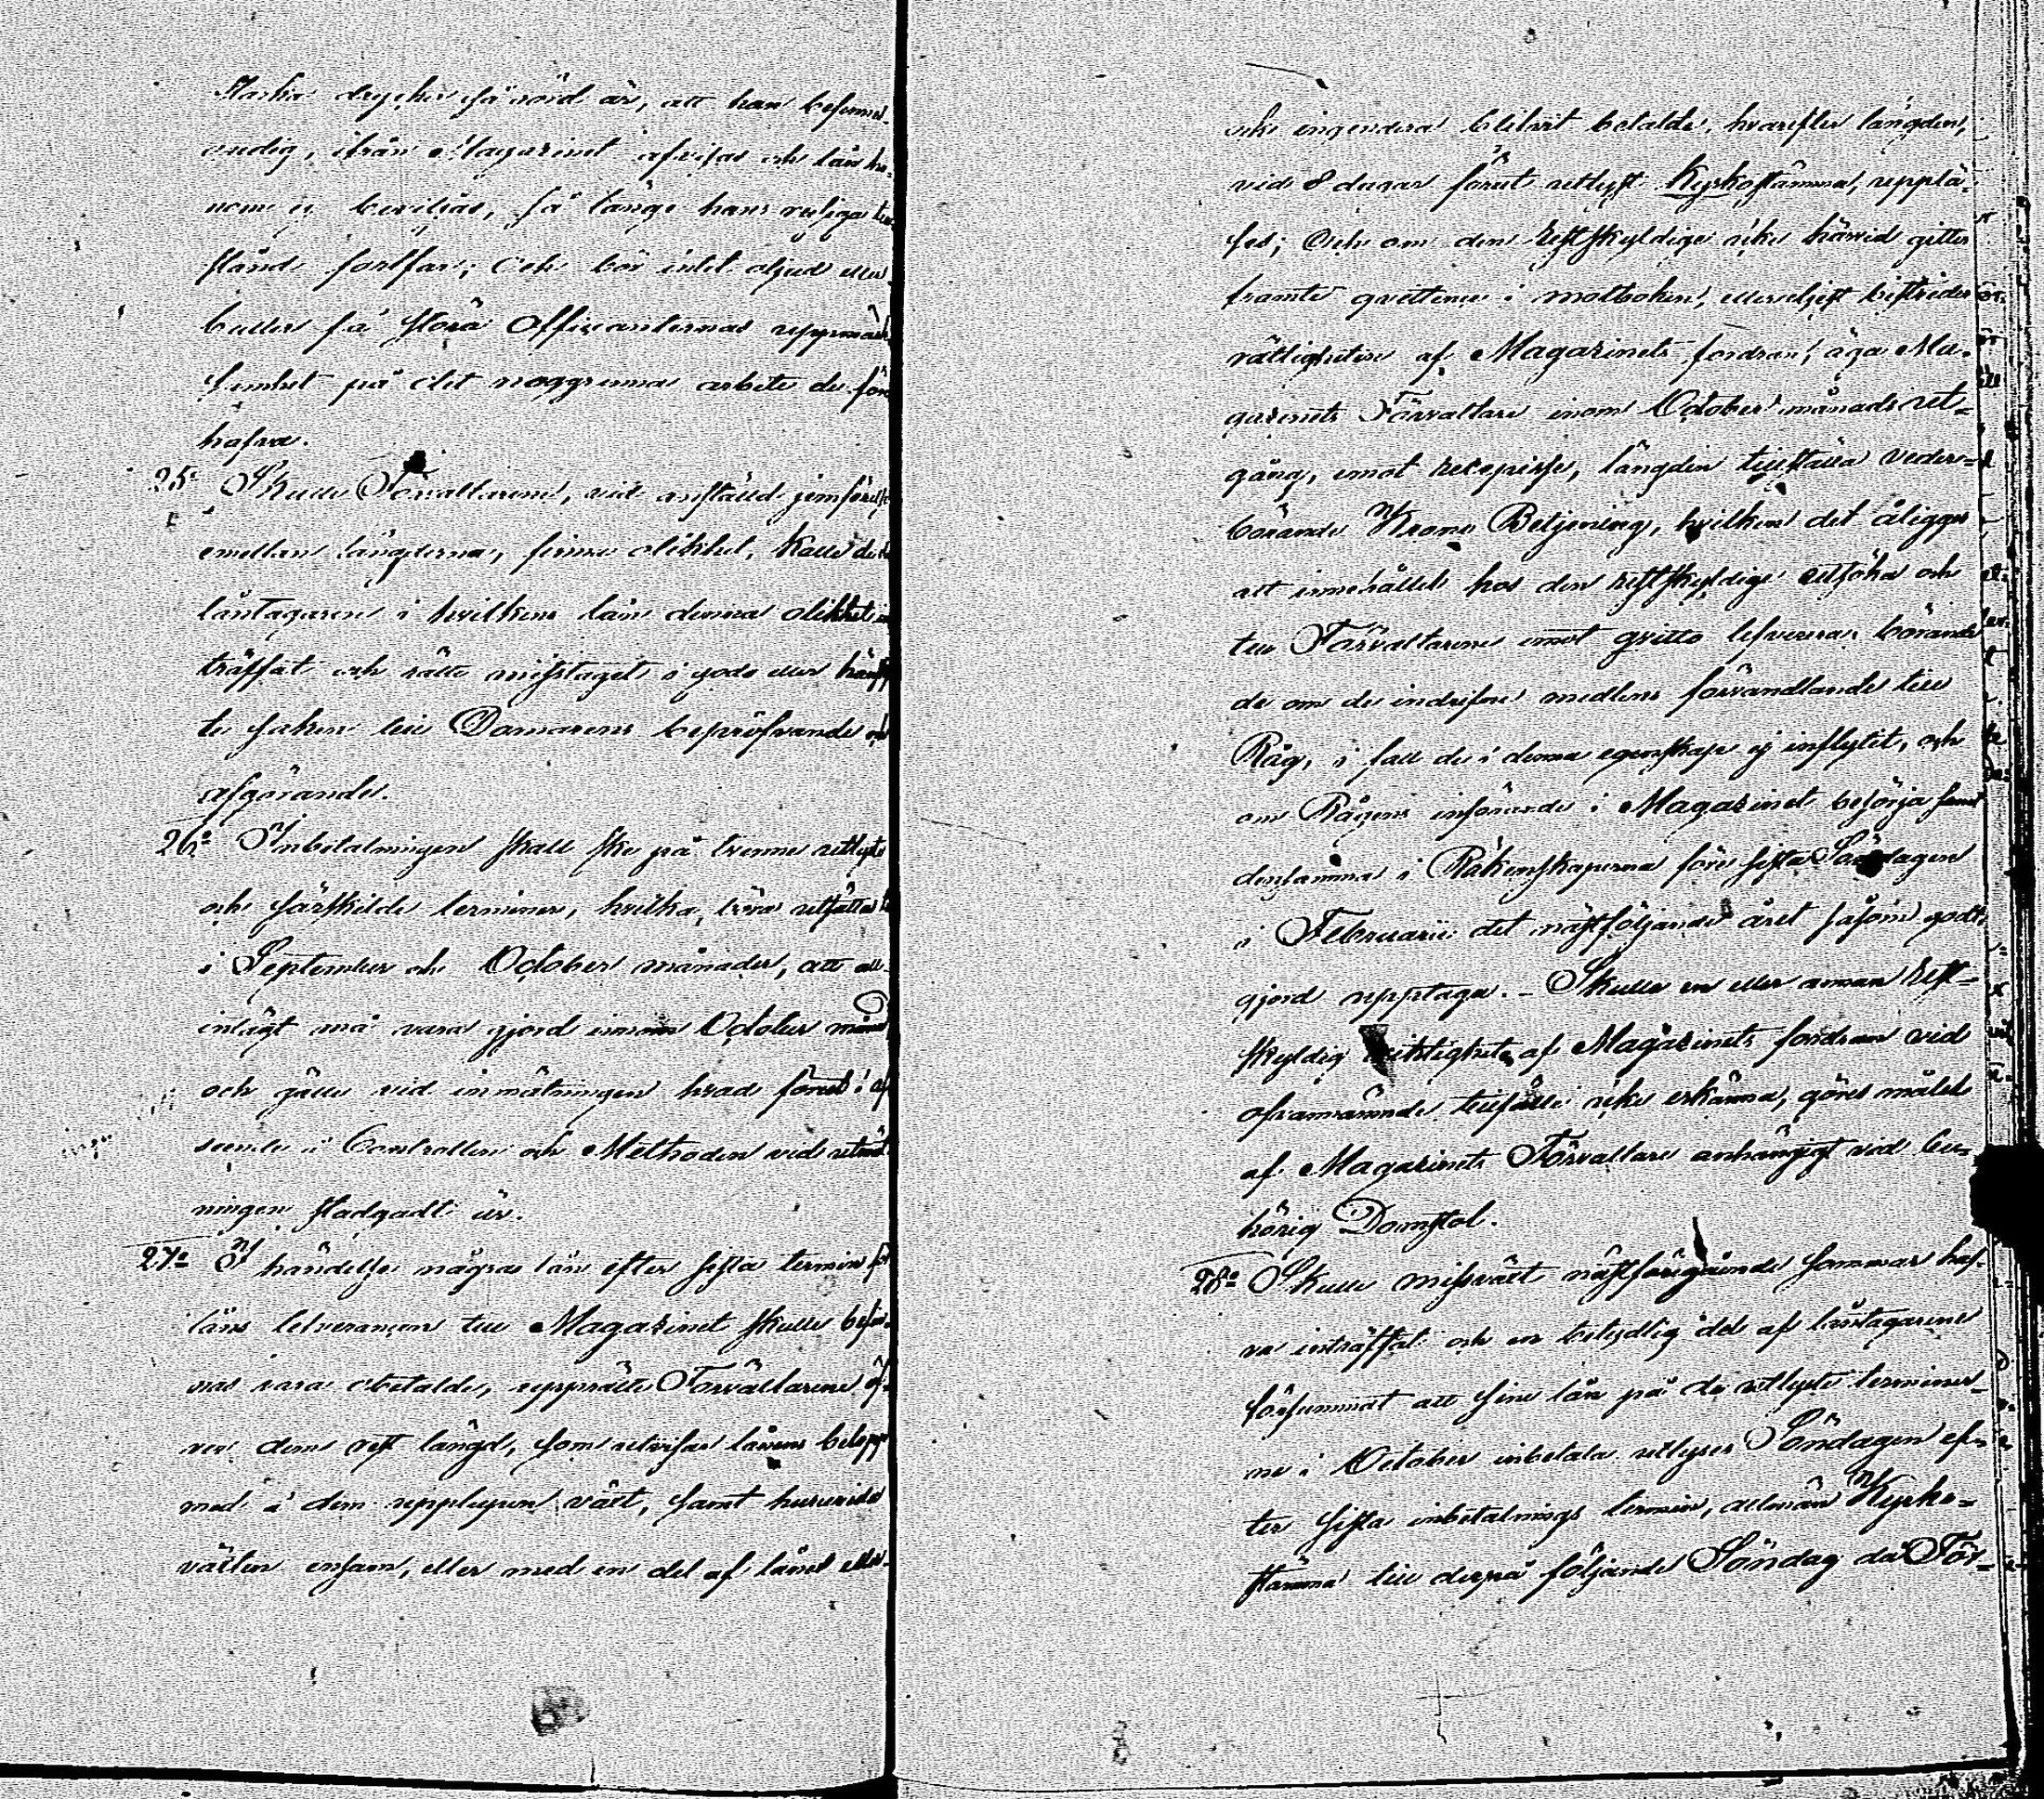 Starka drycker så rörd är, att han befinnes
oredig, ifrån Magazinet afvisas och lån ho-
nom ej beviljas, så länge hans rusiga till
stånd fortfar; Och bör intet oljud eller
buller få störa Officianternas uppmärk
samhet på det noggranna arbete de för
hafva.
25o Skulle Förvaltarene, vid anställd jemförelse
emellan längderna, finna olikhet, kalle de
låntagaren i hvilkens lån denna olikhet in
träffat och rätte misstaget i godo eller hänskju
te saken till Domarens bepröfvande och
afgörande.
26o Inbetalningen skall ske på trenne utlyste
och särskilde terminer, hvilka böra utsättas
i September och October månader, att all
inlagt må vara gjord innom October månad
och gälle vid inmätningen hvad förut i af
seende å Controllen och Methoden vid utmät
ningen stadgadt är.
27o I händelse några lån efter sista termin för
låns leverancen till Magazinet skulle befin-
nas vara obetalde, upprätte Förvaltarene öf-
ver dem rest längd, som utvisar lånens belopp
med å dem upplupen växt, samt huruvida
växten ensam, eller med en del af lånet eller
icke ingendera blifvit betaldt, hvarefter längden,
vid 8 dagar förut utlyst Kyrkostämma, upplä-
ses; Och om den restskyldige icke härvid gitter
framte qvittence i motboken, eller eljest bestrider
rättigheten af Magazinets fordran, äga Ma-
gazinets Förvaltare inom October månads ut-
gång, emot recepisse, längden tillställa veder-
börande Krono Betjening, hvilken det åligger
att innehållet hos den restskyldige utsöka och
till Förvaltarene emot qvitto lefverera börande
de om de indrifne medlens förvandlande till
Råg, i fall de i denna egenskap ej influtit, och
om Rågens införande i Magazinet besörja samt
densamma i Räkenskaperna före sista Söndagen
i Februarii det nästföljande året såsom godt-
gjord upptaga. - Skulle en eller annan rest-
skyldig riktigheten af Magazinets fordran vid
ofvannämnde tillfälle icke erkänna, göres målet
af Magazinets Förvaltare anhängigt vid be-
hörig Domstol.
28o Skulle missväxt nästföregående sommar haf-
va inträffat och en betydlig del af låntagarene
försummat att sine lån på de utlyste terminer-
ne i October inbetala utlyses Söndagen ef-
ter sista inbetalnings termin, allmän Kyrko-
stämma till derpå följande Söndag då För-